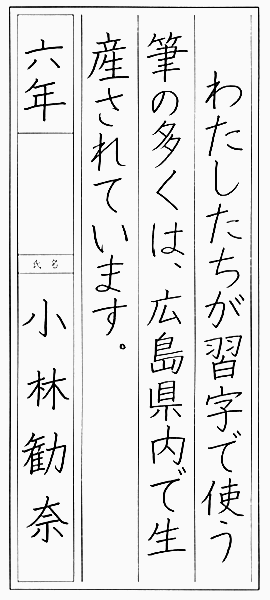 わたしたちが習字で使う
筆の多くは、広島県内で生
産されています。
六年
氏名
小林勧奈